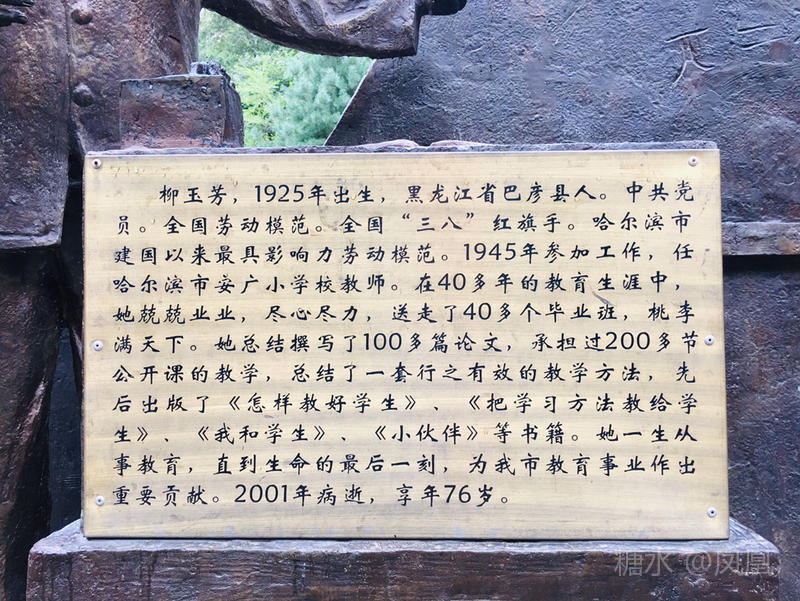 柳玉芳，1925年出生，黑龙江省巴彦县人。中共党
员。全国劳动模范。全国“三八”红旗手。哈尔滨市
建国以来最具影响力劳动模范。1945年参加工作，任
哈尔滨市安广小学校教师。在40多年的教育生涯中，
她兢兢业业，尽心尽力，送走了40多个毕业班，桃李
满天下。她总结撰写了100多篇论文，承担过200多节
公开课的教学，总结了一套行之有效的教学方法，先
后出版了《怎样教好学生》、《把学习方法教给学
生》、《我和学生》、《小伙伴》等书籍。她一生从
事教育，直到生命的最后一刻，为我市教育事业作出
重要贡献。2001年病逝，享年76岁。
糖水 @凤凰